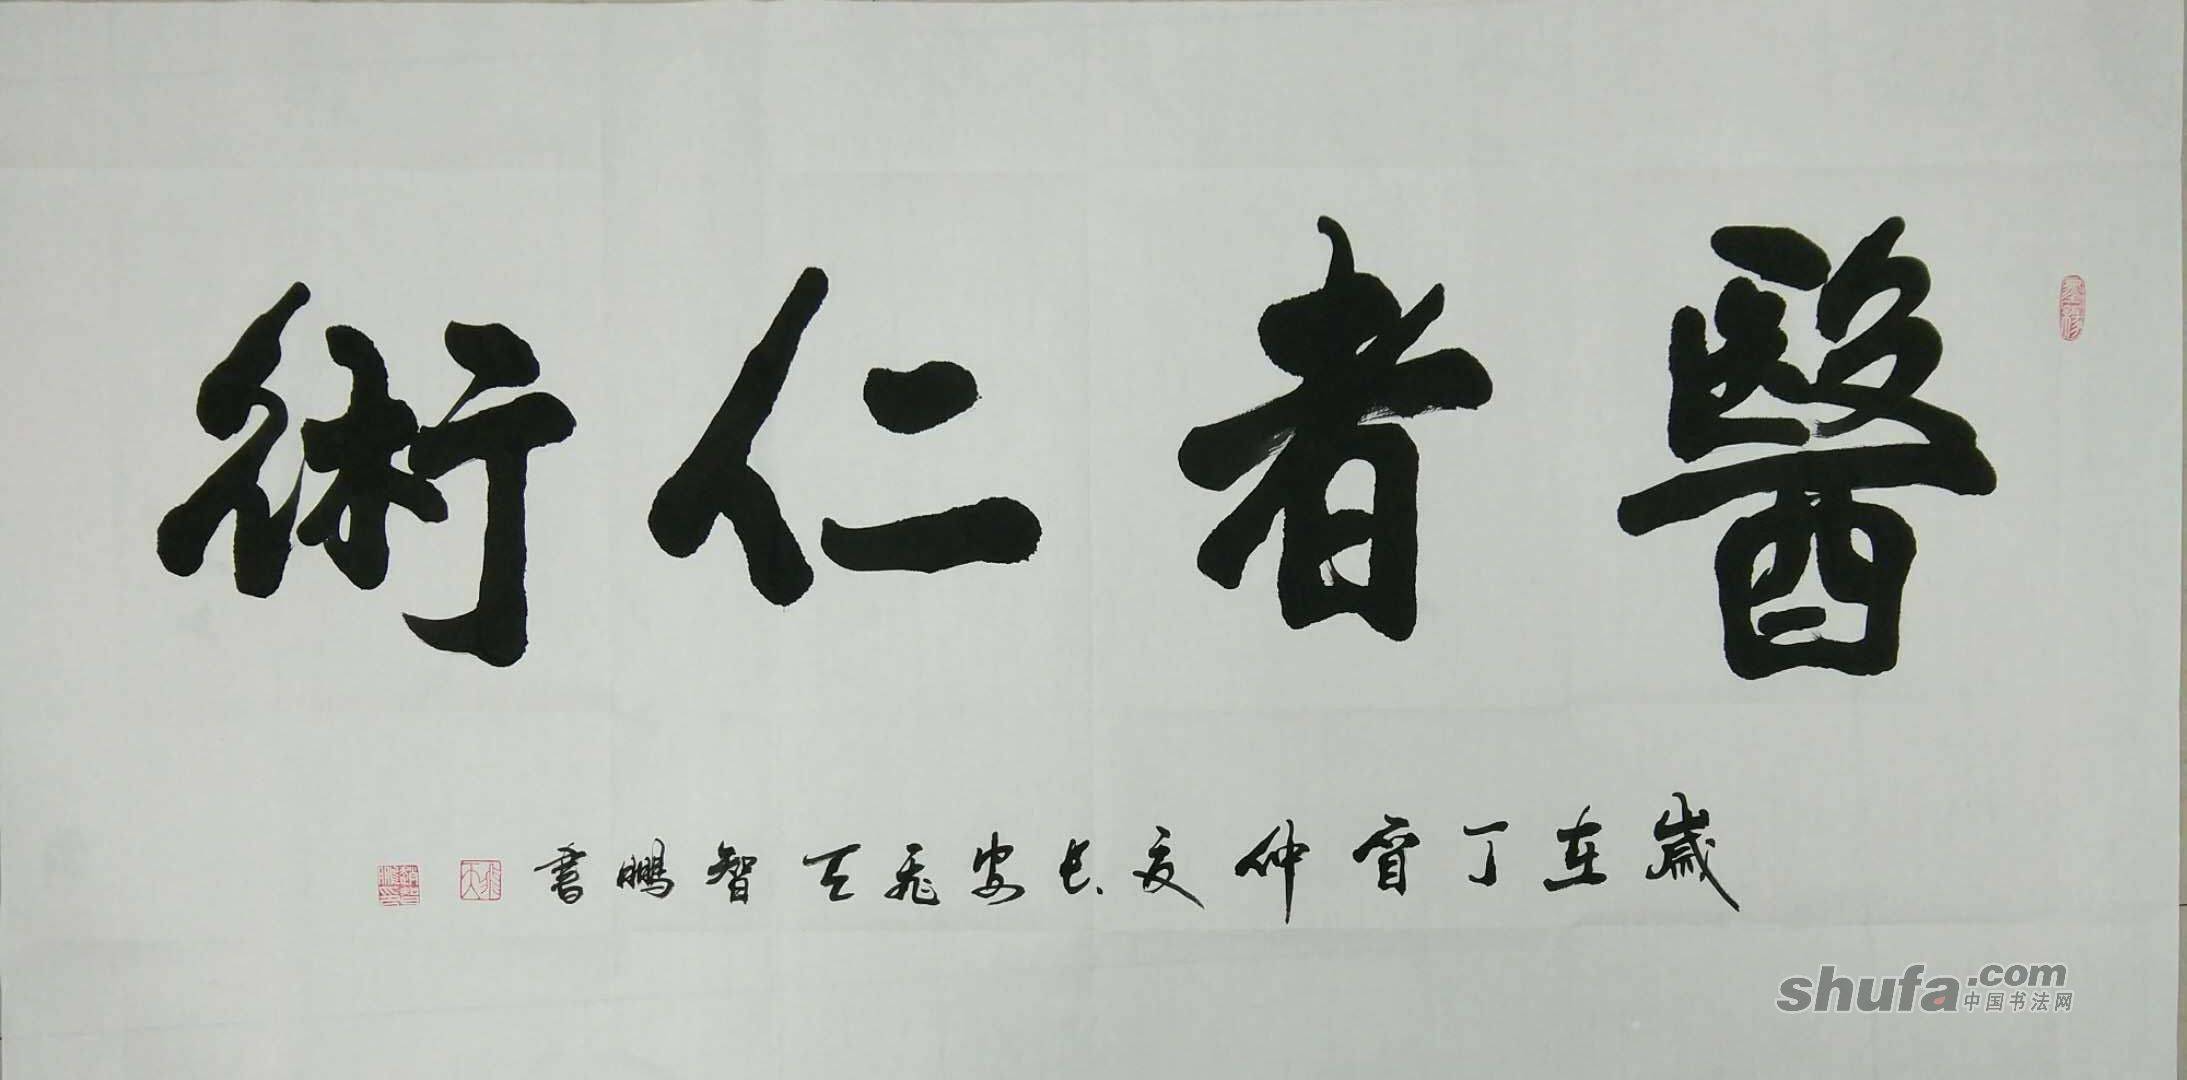 醫者仁術
歲在丁酉仲夏長安飛天智鵬書
shufa.com
中国书法网